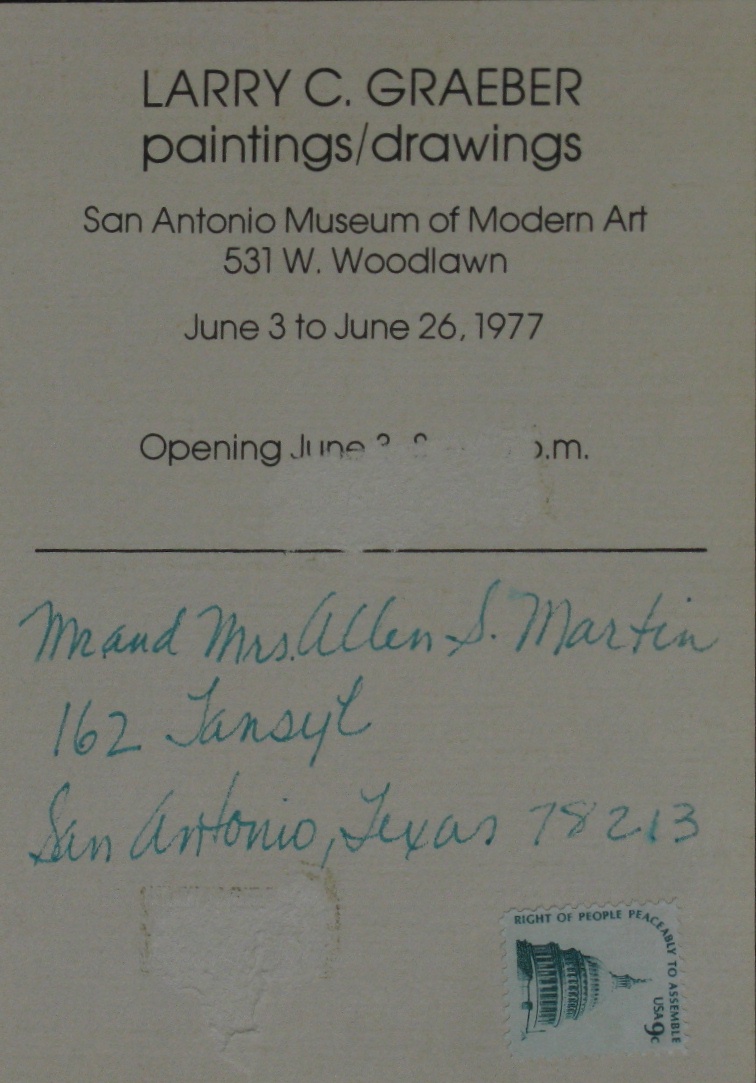 LARRY C. GRAEBER
paintings/drawings
San Antonio Museum of Modern Art
531 W. Woodlawn
June 3 to June 26, 1977
Opening June p.m.
Mr and Mrs. Allen S. Martin
162 Tansyl
San Antonio, Texas 78213
RIGHT OF PEOPLE PEACEABLY TO ASSEMBLE
USA 9c